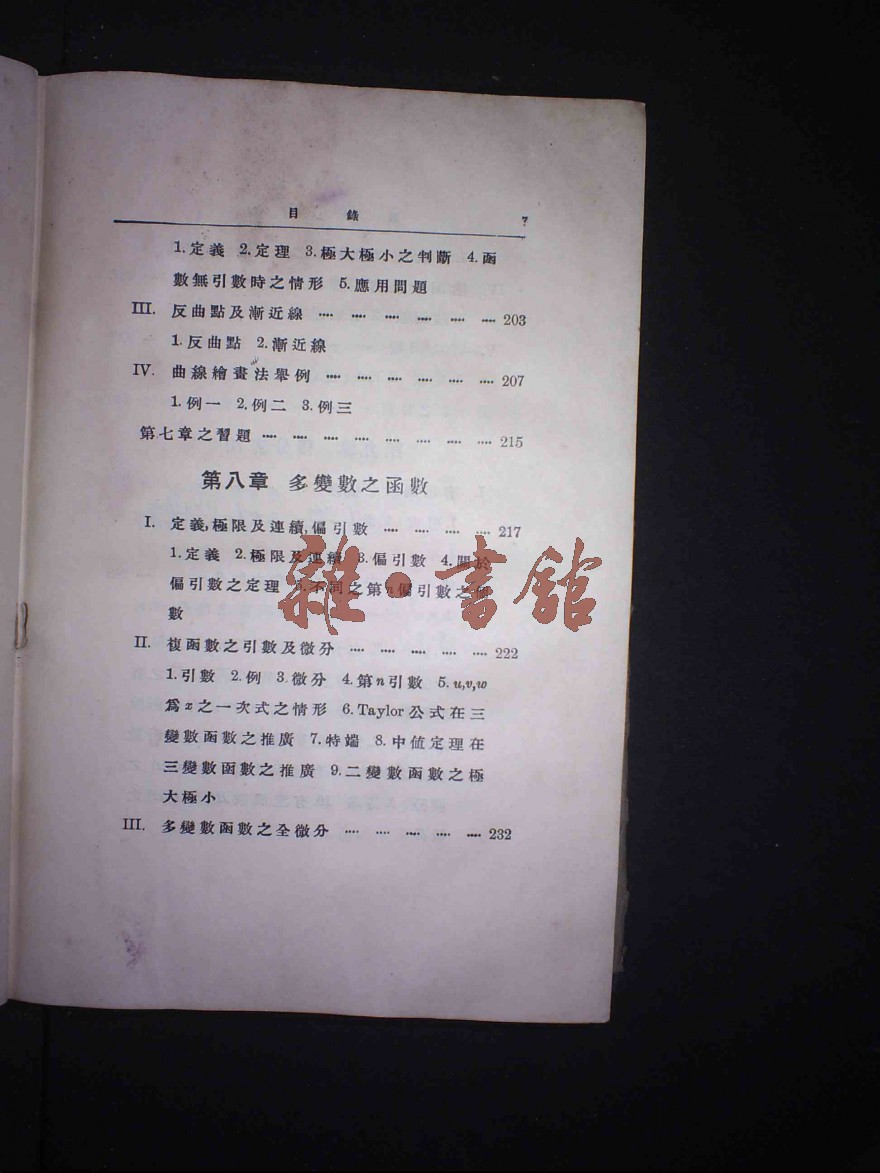 目 錄 7
1.定義 2.定理 3.極大極小之判斷 4.函
數無引數時之情形 5.應用問題
III. 反曲點及漸近線 ···· ···· ···· ···· ···· ···· 203
1.反曲點 2.漸近線
IV. 曲線繪畫法舉例 ···· ···· ···· ···· ···· ···· 207
1.例一 2.例二 3.例三
第七章之習題 ···· ···· ···· ···· ···· ···· ···· ···· 215
第八章 多變數之函數
I. 定義,極限及連續,偏引數 ···· ···· ···· ···· 217
1.定義 2.極限及連續 3.偏引數 4.關於
偏引數之定理 5.不同之第n偏引數之個
數
II. 複函數之引數及微分 ···· ···· ···· ···· ···· 222
1.引數 2.例 3.微分 4.第n引數 5.u,v,w
爲x之一次式之情形 6.Taylor公式在三
變數函數之推廣 7.特端 8.中值定理在
三變數函數之推廣 9.二變數函數之極
大極小
III. 多變數函數之全微分 ···· ···· ···· ···· ···· 232
雜·書館